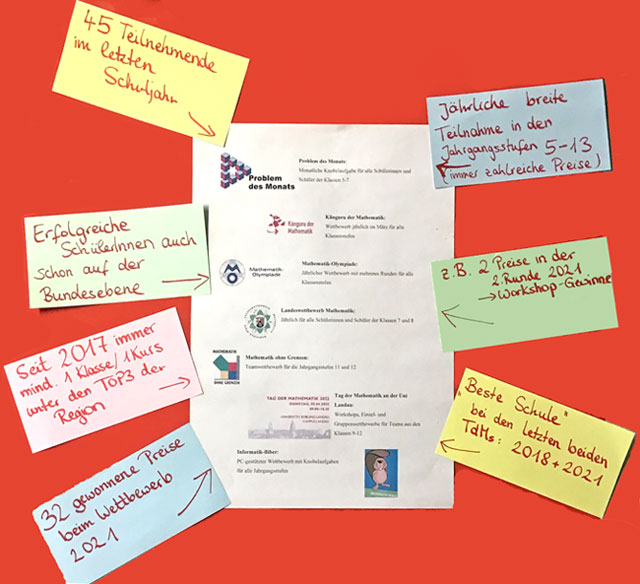 45 Teilnehmende
im letzten
Schuljahr
Jährliche breite
Teilnahme in den
Jahrgangsstufen 5-13
(immer zahlreiche Preise)
Problem
des Monats
Problem des Monats:
Monatliche Knobelaufgabe für alle Schülerinnen und
Schüler der Klassen 5-7
Känguru der
Mathematik
Känguru der Mathematik:
Wettbewerb jährlich im März für alle
Klassenstufen
Erfolgreiche
SchülerInnen auch
schon auf der
Bundesebene
MO
Mathematik-
Olympiade
Mathematik-Olympiade:
Jährlicher Wettbewerb mit mehreren Runden für alle
Klassenstufen
z.B. 2 Preise in der
2. Runde 2021
→ Workshop-Gewinne
Landeswettbewerb Mathematik:
Jährlich für alle Schülerinnen und Schüler der Klassen 7 und 8
Seit 2017 immer
mind. 1 Klasse/1 Kurs
unter den TOP3 der
Region
MATHEMATIK
OHNE GRENZEN
Mathematik ohne Grenzen:
Teamwettbewerb für die Jahrgangsstufen 11 und 12
TAG DER MATHEMATIK 2022
Tag der Mathematik an der Uni
Landau:
Workshops, Einzel- und
Gruppenwettbewerbe für Teams aus den
Klassen 9-12
"Beste Schule"
bei den letzten beiden
TdMs: 2018 + 2021
32 gewonnene Preise
beim Wettbewerb
2021
Informatik-Biber:
PC-gestützter Wettbewerb mit Knobelaufgaben
für alle Jahrgangsstufen